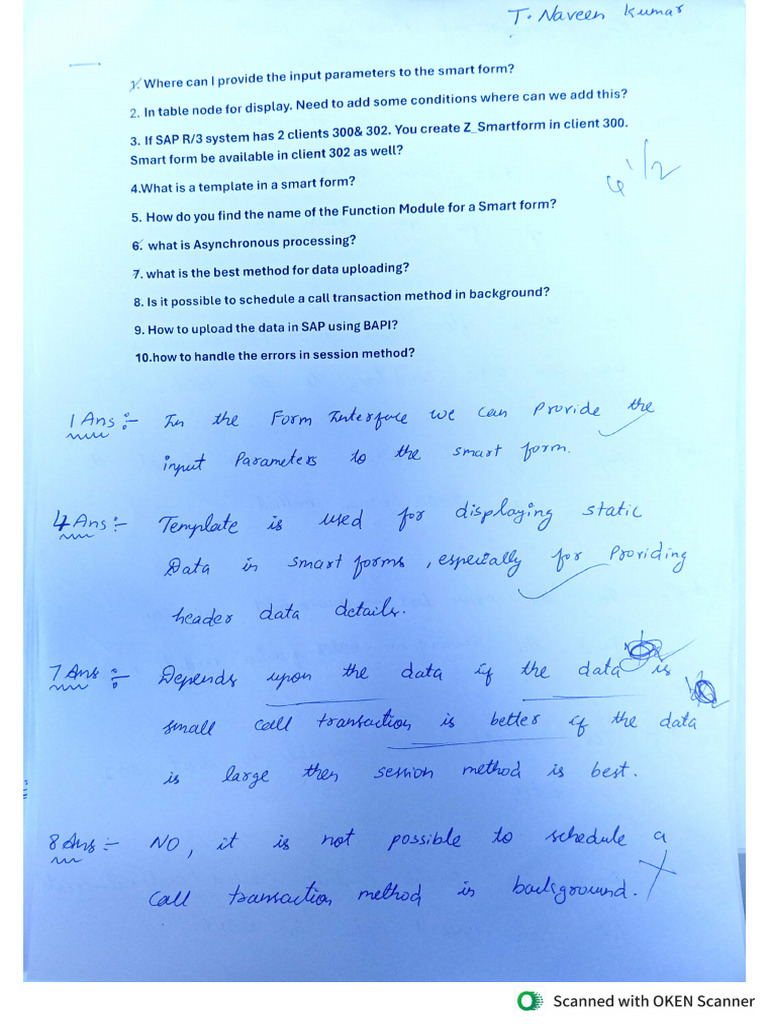 T. Naveen Kumar
1. Where can I provide the input parameters to the smart form?
2. In table node for display. Need to add some conditions where can we add this?
3. If SAP R/3 system has 2 clients 300& 302. You create Z_Smartform in client 300.
Smart form be available in client 302 as well?
4.What is a template in a smart form?
6 1/2
5. How do you find the name of the Function Module for a Smart form?
6. what is Asynchronous processing?
7. what is the best method for data uploading?
8. Is it possible to schedule a call transaction method in background?
9. How to upload the data in SAP using BAPI?
10.how to handle the errors in session method?
1 Ans :- In the Form Interface we can Provide the
input Parameters to the smart form.
4 Ans :- Template is used for displaying static
Data in smart forms, especially for Providing
header data details.
7 Ans :- Depends upon the data if the data is
small call transaction is better if the data
is large then session method is best.
8 Ans :- NO, it is not possible to schedule a
call transaction method in background.
Scanned with OKEN Scanner